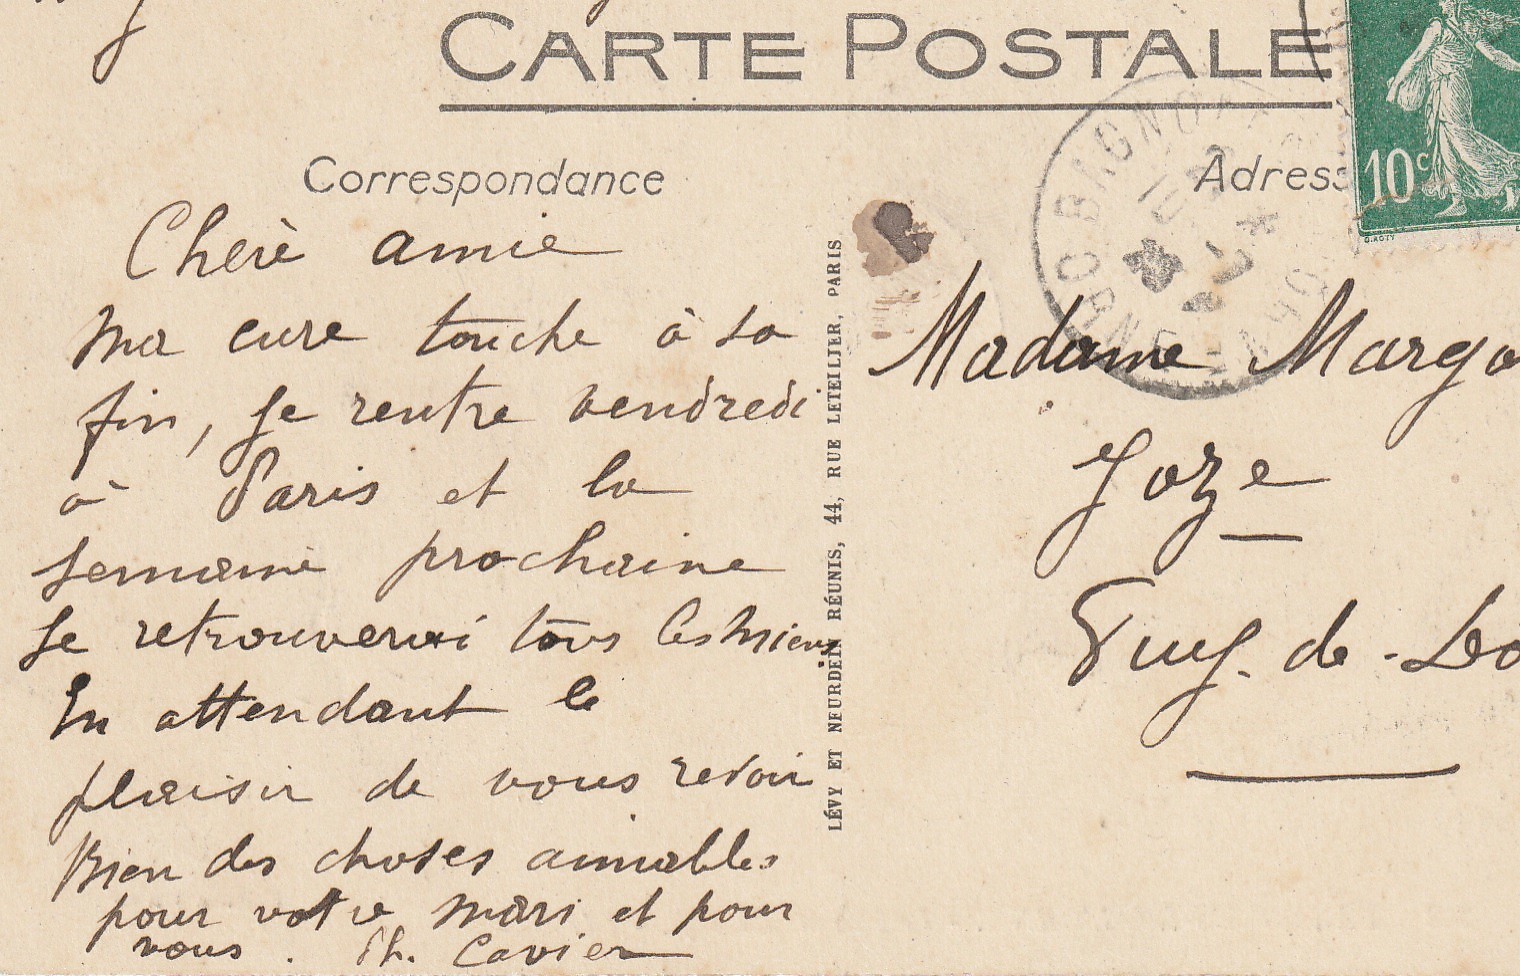 CARTE POSTALE
Correspondance
Chère amie
Ma cure touche à sa
fin, je rentre vendredi
à Paris et la
semaine prochaine
je retrouverai tous les miens.
En attendant le
plaisir de vous revoir
Bien des choses aimables
pour votre mari et pour
vous. Th. Cavier
LÉVY ET NEURDEIN RÉUNIS, 44, RUE LETELLIER, PARIS
Adress
10c
BAGNO
ORNE
Madame Margo
Joze
Puy-de-Dô